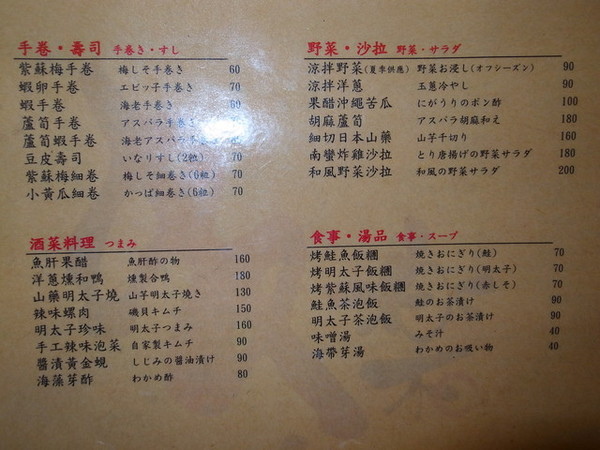 手卷・壽司 手巻き・すし
紫蘇梅手卷 梅しそ手巻き 60
蝦卵手卷 エビッ子手巻き 70
蝦手卷 海老手巻き
蘆筍手卷 アスパラ手巻き
蘆筍蝦手卷 海老アスパラ手巻き
豆皮壽司 いなりすし(2粒) 70
紫蘇梅細卷 梅しそ細巻き(6粒) 70
小黃瓜細卷 かっぱ細巻き(6粒) 70
酒菜料理 つまみ
魚肝果醋 魚肝酢の物 160
洋蔥燻和鴨 燻製合鴨 180
山藥明太子燒 山芋明太子焼き 130
辣味螺肉 磯貝キムチ 150
明太子珍味 明太子つまみ 160
手工辣味泡菜 自家製キムチ 90
醬漬黃金蜆 しじみの醤油漬け 90
海藻芽酢 わかめ酢 80
野菜・沙拉 野菜・サラダ
涼拌野菜(夏季供應) 野菜お浸し(オフシーズン) 90
涼拌洋蔥 玉葱冷やし 90
果醋沖繩苦瓜 にがうりのポン酢 100
胡麻蘆筍 アスパラ胡麻和え 180
細切日本山藥 山芋千切り 160
南蠻炸雞沙拉 とり唐揚げの野菜サラダ 180
和風野菜沙拉 和風の野菜サラダ 200
食事・湯品 食事・スープ
烤鮭魚飯糰 焼きおにぎり(鮭) 70
烤明太子飯糰 焼きおにぎり(明太子) 70
烤紫蘇風味飯糰 焼きおにぎり(赤しそ) 70
鮭魚茶泡飯 鮭のお茶漬け 90
明太子茶泡飯 明太子のお茶漬け 90
味噌湯 みそ汁 40
海帶芽湯 わかめのお吸い物 40